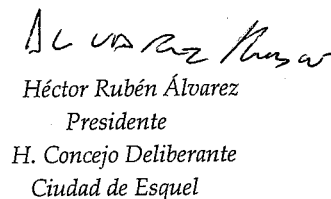 Héctor Rubén Álvarez
Presidente
H. Concejo Deliberante
Ciudad de Esquel